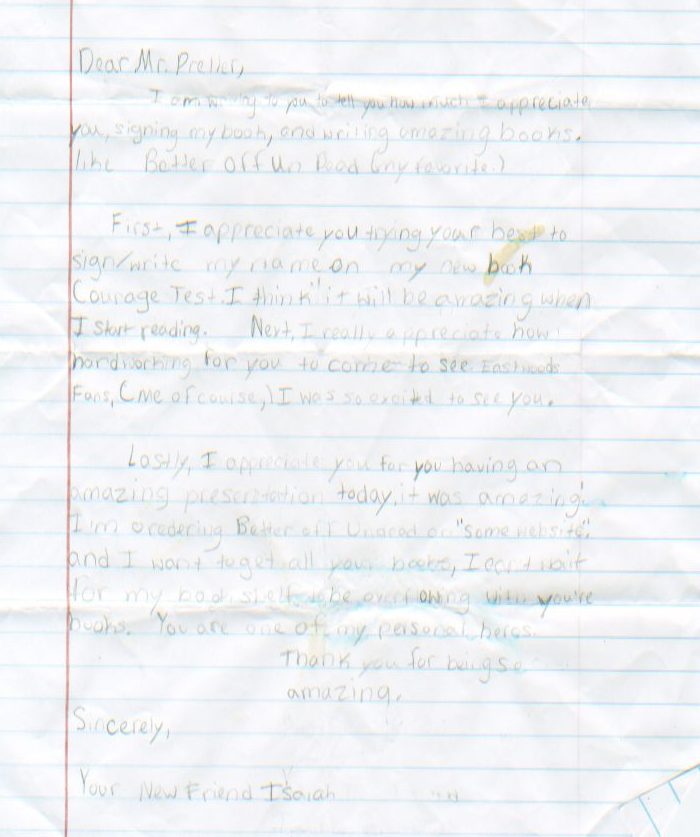 Dear Mr. Preller,
I am writing to you to tell you how much I appreciate
you, signing my book, and writing amazing books.
like Better off Un Dead (my favorite.)
First, I appreciate you trying your best to
sign/write my name on my new book
Courage Test. I think it will be amazing when
I start reading. Next, I really appreciate how
hardworking for you to come to see Eastwoods
Fans, (me of course,) I was so excited to see you.
Lastly, I appreciate you for you having an
amazing presentation today, it was amazing!
I'm oredering Better off Undead on "some website".
and I want to get all your books, I can't wait
for my book shelf to be overflowing with you're
books. You are one of my personal heros.
Thank you for being so
amazing.
Sincerely,
Your New Friend Isaiah